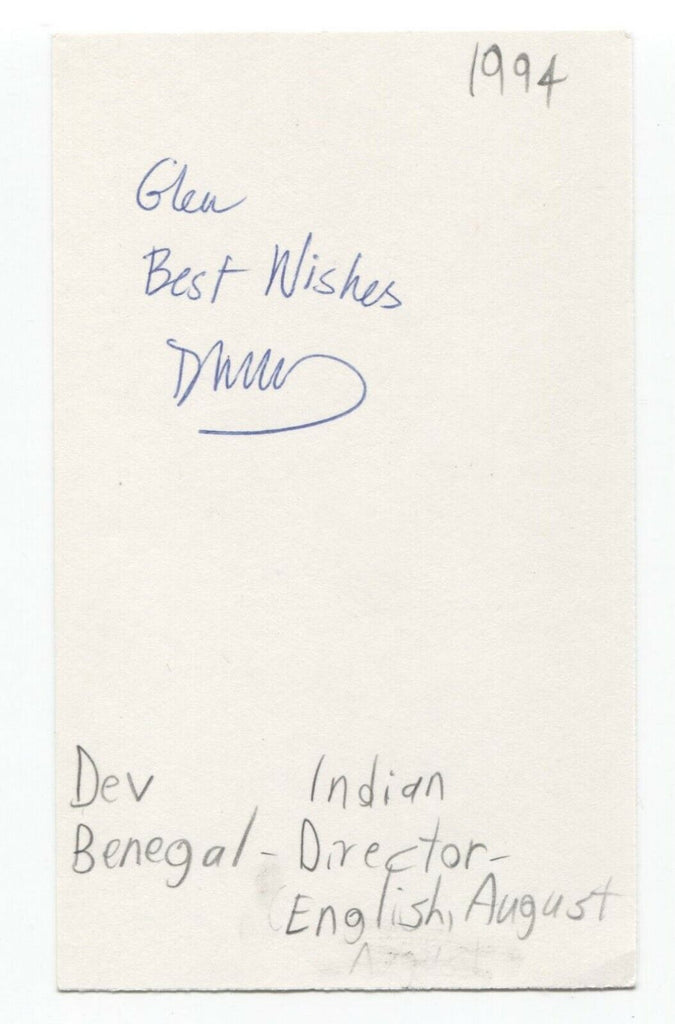 1994
Glen
Best Wishes
Dev Indian
Benegal - Director -
English, August